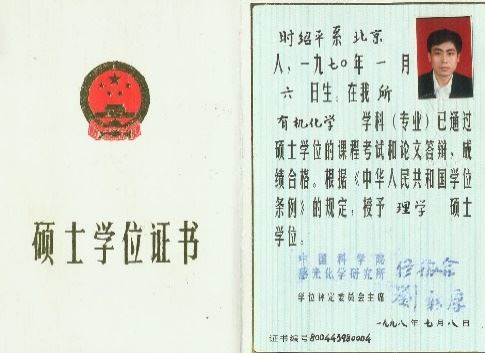 硕士学位证书
时绍平系 北京
人,一九七〇年 一 月
六 日生。在我 所
有机化学 学科(专业)已通过
硕士学位的课程考试和论文答辩,成
绩合格。根据《中华人民共和国学位
条例》的规定,授予 理学 硕士
学位。
中国科学院
感光化学研究所
学位评定委员会主席
一九九八年 七 月 八 日
证书编号